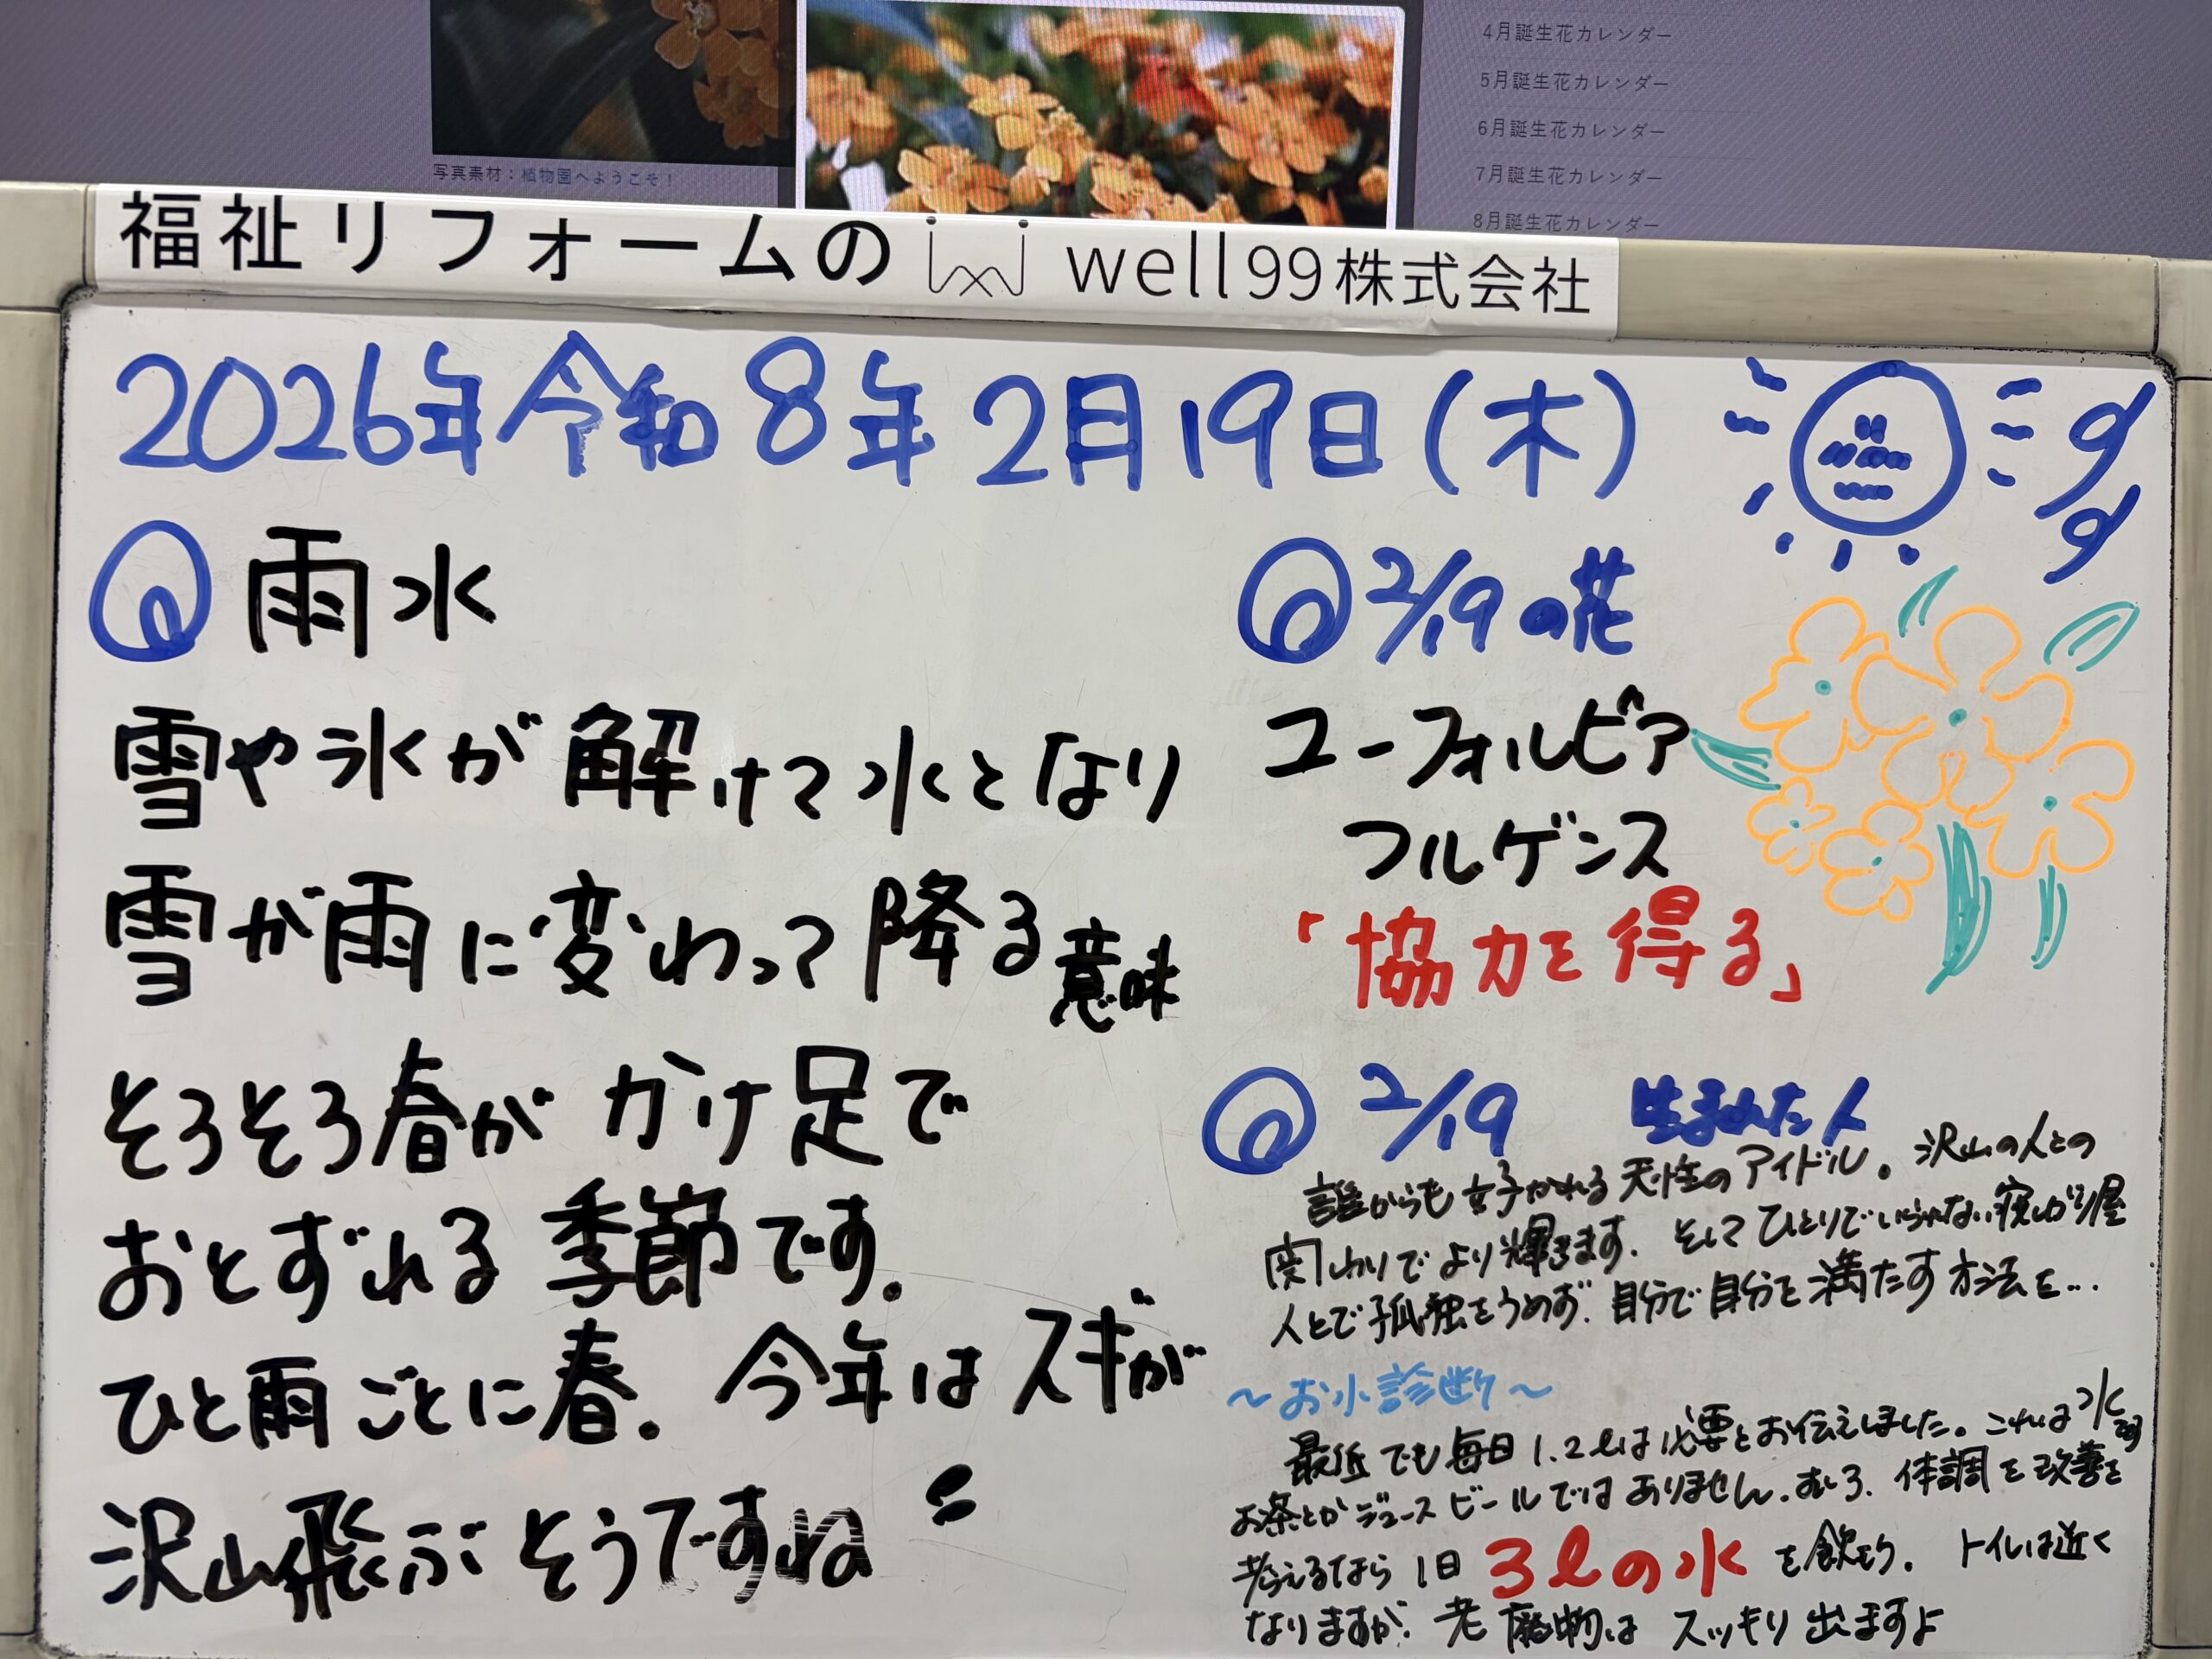 4月誕生花カレンダー
5月誕生花カレンダー
6月誕生花カレンダー
7月誕生花カレンダー
8月誕生花カレンダー
写真素材：植物園へようこそ！
福祉リフォームの well99株式会社
2026年令和8年2月19日(木)
雨水
雪や氷が解けて水となり
雪が雨に変わって降る意味
そろそろ春がかけ足で
おとずれる季節です。
ひと雨ごとに春。今年はスギが
沢山飛ぶそうですね
2/19の花
ユーフォルビア
フルゲンス
「協力を得る」
2/19 生まれた人
誰からも好かれる天性のアイドル。沢山の人との
関わりでより輝きます。そしてひとりでいられない寂しがり屋
人とで孤独をうめず、自分で自分を満たす方法を...
～お小診断～
最低でも毎日1.2ℓは必要とお伝えしました。これは水
お茶とかジュースビールではありません。むしろ、体調を改善を
考えるなら1日3ℓの水を飲もう。トイレは近く
なりますが、老廃物はスッキリ出ますよ